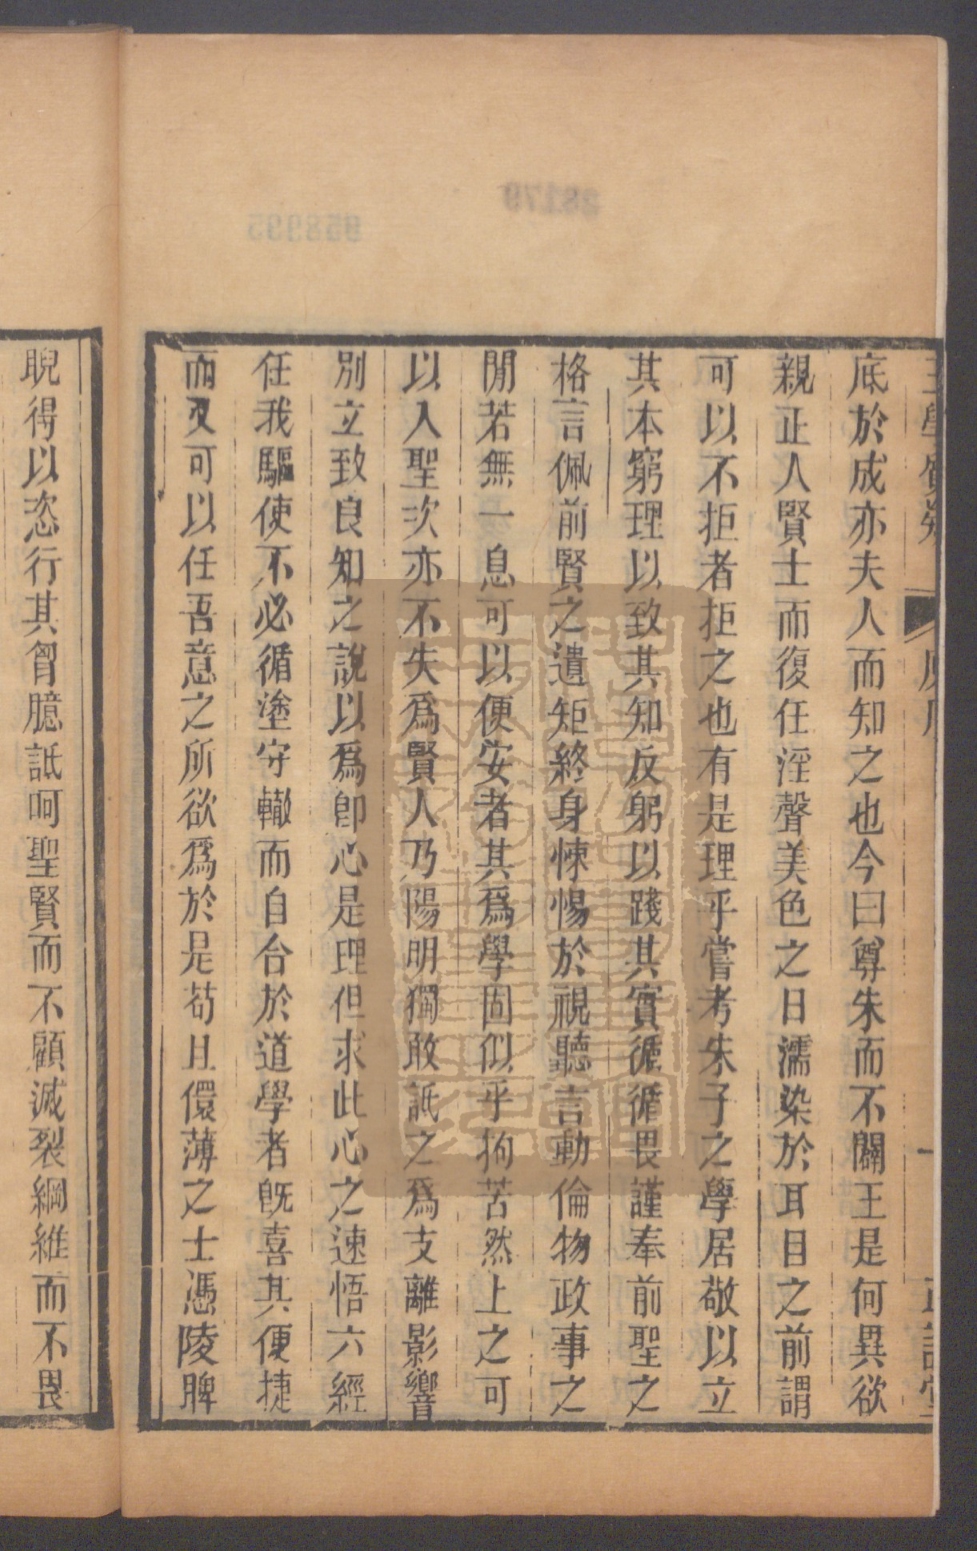 王學質疑
原序
一
正誼堂
底於成亦夫人而知之也今曰尊朱而不闢王是何異欲
親正人賢士而復任淫聲美色之日濡染於耳目之前謂
可以不拒者拒之也有是理乎嘗考朱子之學居敬以立
其本窮理以致其知反躬以踐其實循循畏謹奉前聖之
格言佩前賢之遺矩終身悚惕於視聽言動倫物政事之
閒若無一息可以便安者其爲學固似乎拘苦然上之可
以入聖次亦不失爲賢人乃陽明獨敢詆之爲支離影響
別立致良知之說以爲卽心是理但求此心之速悟六經
任我驅使不必循塗守轍而自合於道學者旣喜其便捷
而又可以任吾意之所欲爲於是苟且儇薄之士憑陵脾
睨得以恣行其胷臆詆呵聖賢而不顧滅裂綱維而不畏
958995